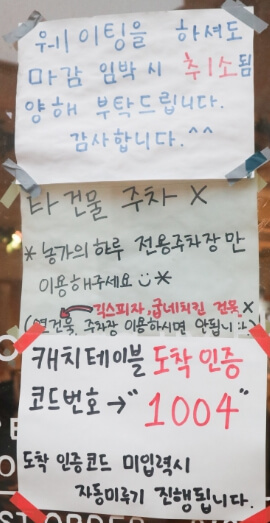 웨이팅을 하셔도
마감 임박 시 취소됨
양해 부탁드립니다.
감사합니다.^^
타건물 주차 X
* 농가의하루 전용주차장만
이용해주세요 *
픽스피자,굽네치킨 건물 X
(옆건물, 주차장 이용하시면 안됩니
캐치테이블 도착 인증
코드번호 → "1004"
도착 인증코드 미입력시
자동미루기 진행됩니다.
ST ORDER